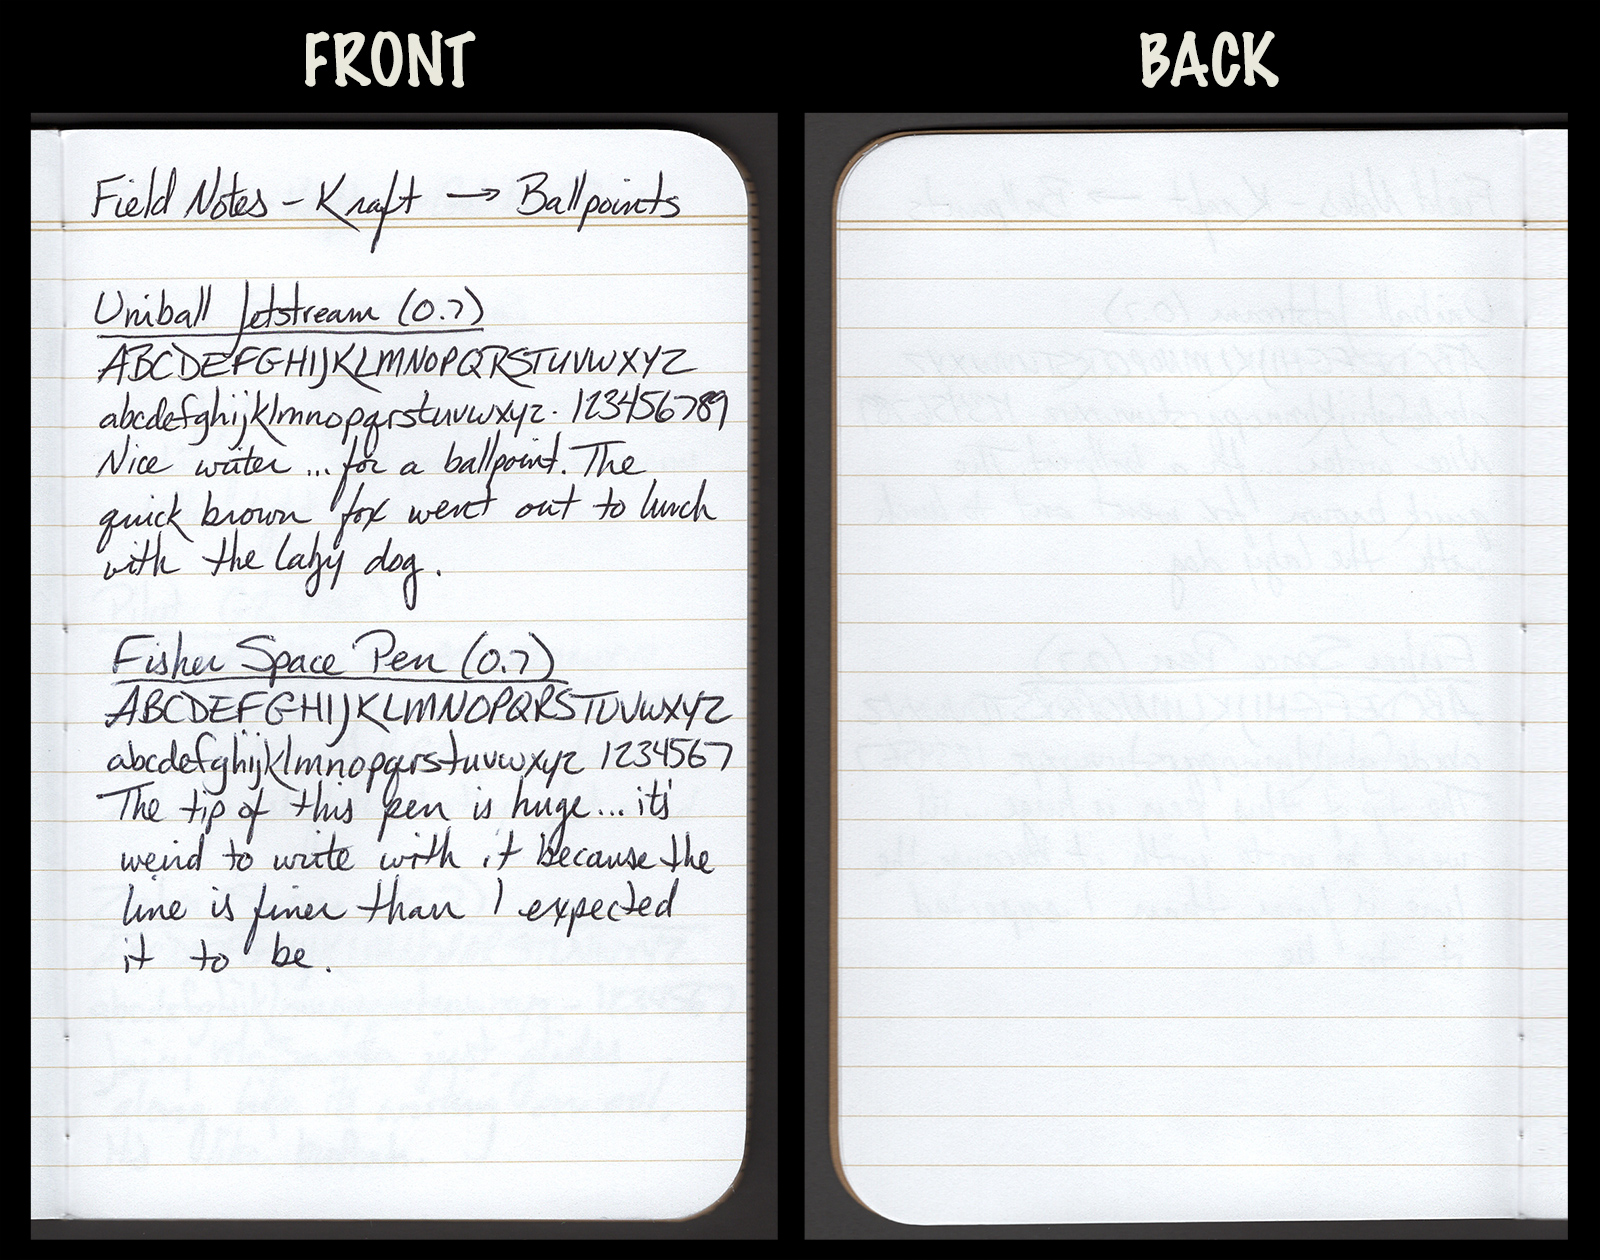 FRONT
BACK
Field Notes - Kraft → Ballpoints
Uniball Jetstream (0.7)
ABCDEFGHIJKLMNOPQRSTUVWXYZ
abcdefghijklmnopqrstuvwxyz. 123456789
Nice writer ... for a ballpoint. The
quick brown fox went out to lunch
with the lazy dog.
Fisher Space Pen (0.7)
ABCDEFGHIJKLMNOPQRSTUVWXYZ
abcdefghijklmnopqrstuvwxyz 1234567
The tip of this pen is huge... it's
weird to write with it because the
line is finer than I expected
it to be.